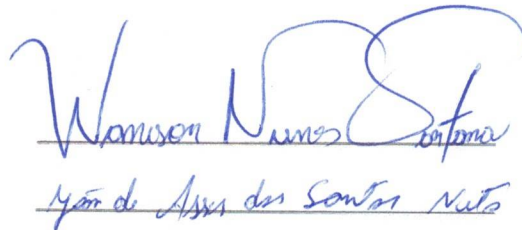 Wamison Nunes Santana
Yan de Assis dos Santos Neto